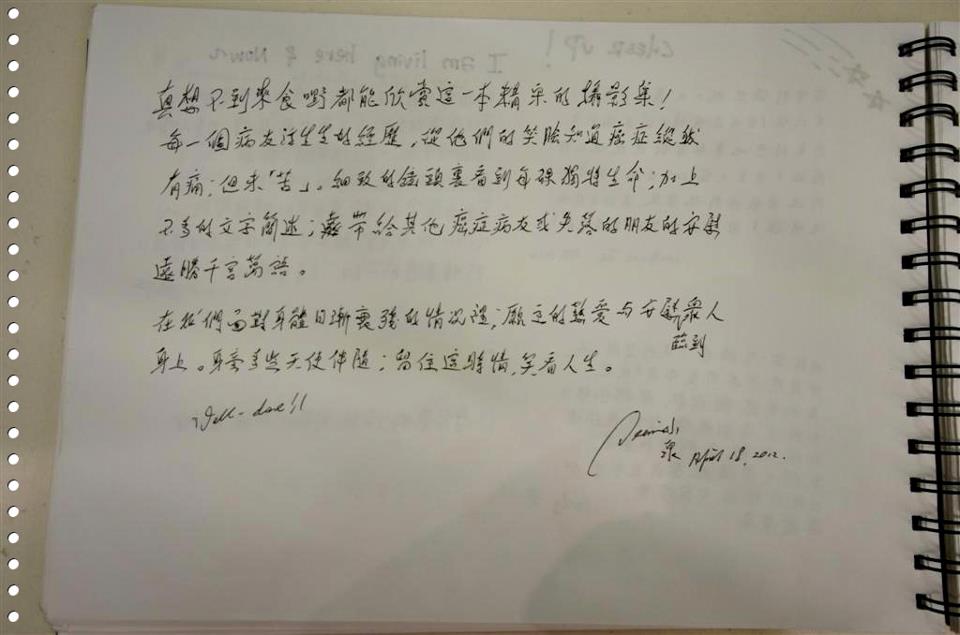 cheer up!
I am living here & Now
真想不到來食嘢都能欣賞這一本精采的攝影集！
每一個病友活生生的經歷，從他們的笑臉知道癌症縱然
有痛；但未「苦」。細緻的鏡頭裏看到每棵獨特生命；加上
不多的文字簡述；帶給其他癌症病友或失落的朋友的安慰
遠勝千言萬語。
在我們面對身體日漸衰殘的情況裡；願主的慈愛与安慰臨到眾人
身上。身旁多些天使伴隨；留住這時情，笑看人生。
Well-done!!
泉 April 18, 2012.